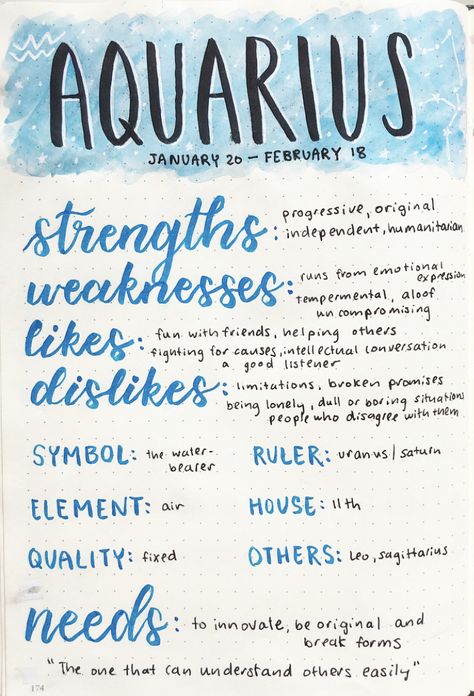 AQUARIUS
JANUARY 20 - FEBRUARY 18
strengths: progressive, original
independent, humanitarian
weaknesses: runs from emotional
expression
tempermental, aloof
uncompromising
likes: fun with friends, helping others
fighting for causes, intellectual conversation
a good listener
dislikes: limitations, broken promises
being lonely, dull or boring situations
people who disagree with them
SYMBOL: the water-
bearer
RULER: uranus/saturn
ELEMENT: air
HOUSE: 11th
QUALITY: fixed
OTHERS: leo, sagittarius
needs: to innovate, be original and
break forms
"The one that can understand others easily"
174